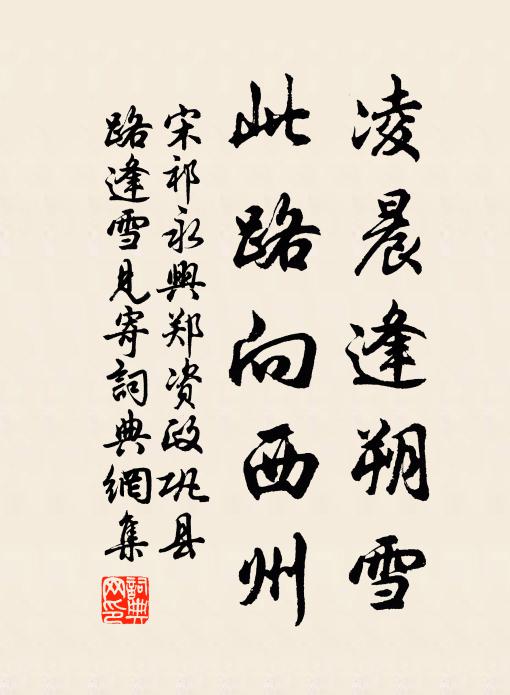 凌晨逢朔雪
此路向西州
宋祁永興郑资政巩县
路逢雪見寄詞典網集
詞典
网印